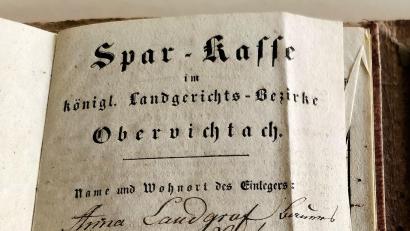 Spar-Kasse
im
königl. Landgerichts-Bezirke
Oberviehtach.
Name und Wohnort des Einlegers:
Anna Landgraf Bauers